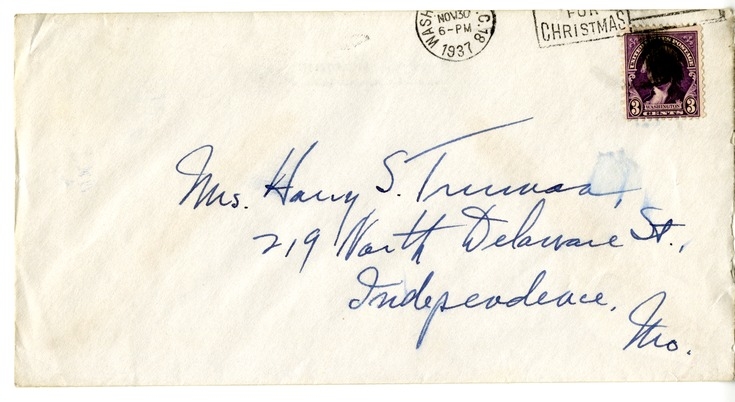 WASH
NOV 30
6-PM
1937
C.18
FOR
CHRISTMAS
UNITED STATES POSTAGE
WASHINGTON
3 CENTS 3
Mrs. Harry S. Truman,
219 North Delaware St.,
Independence,
Mo.